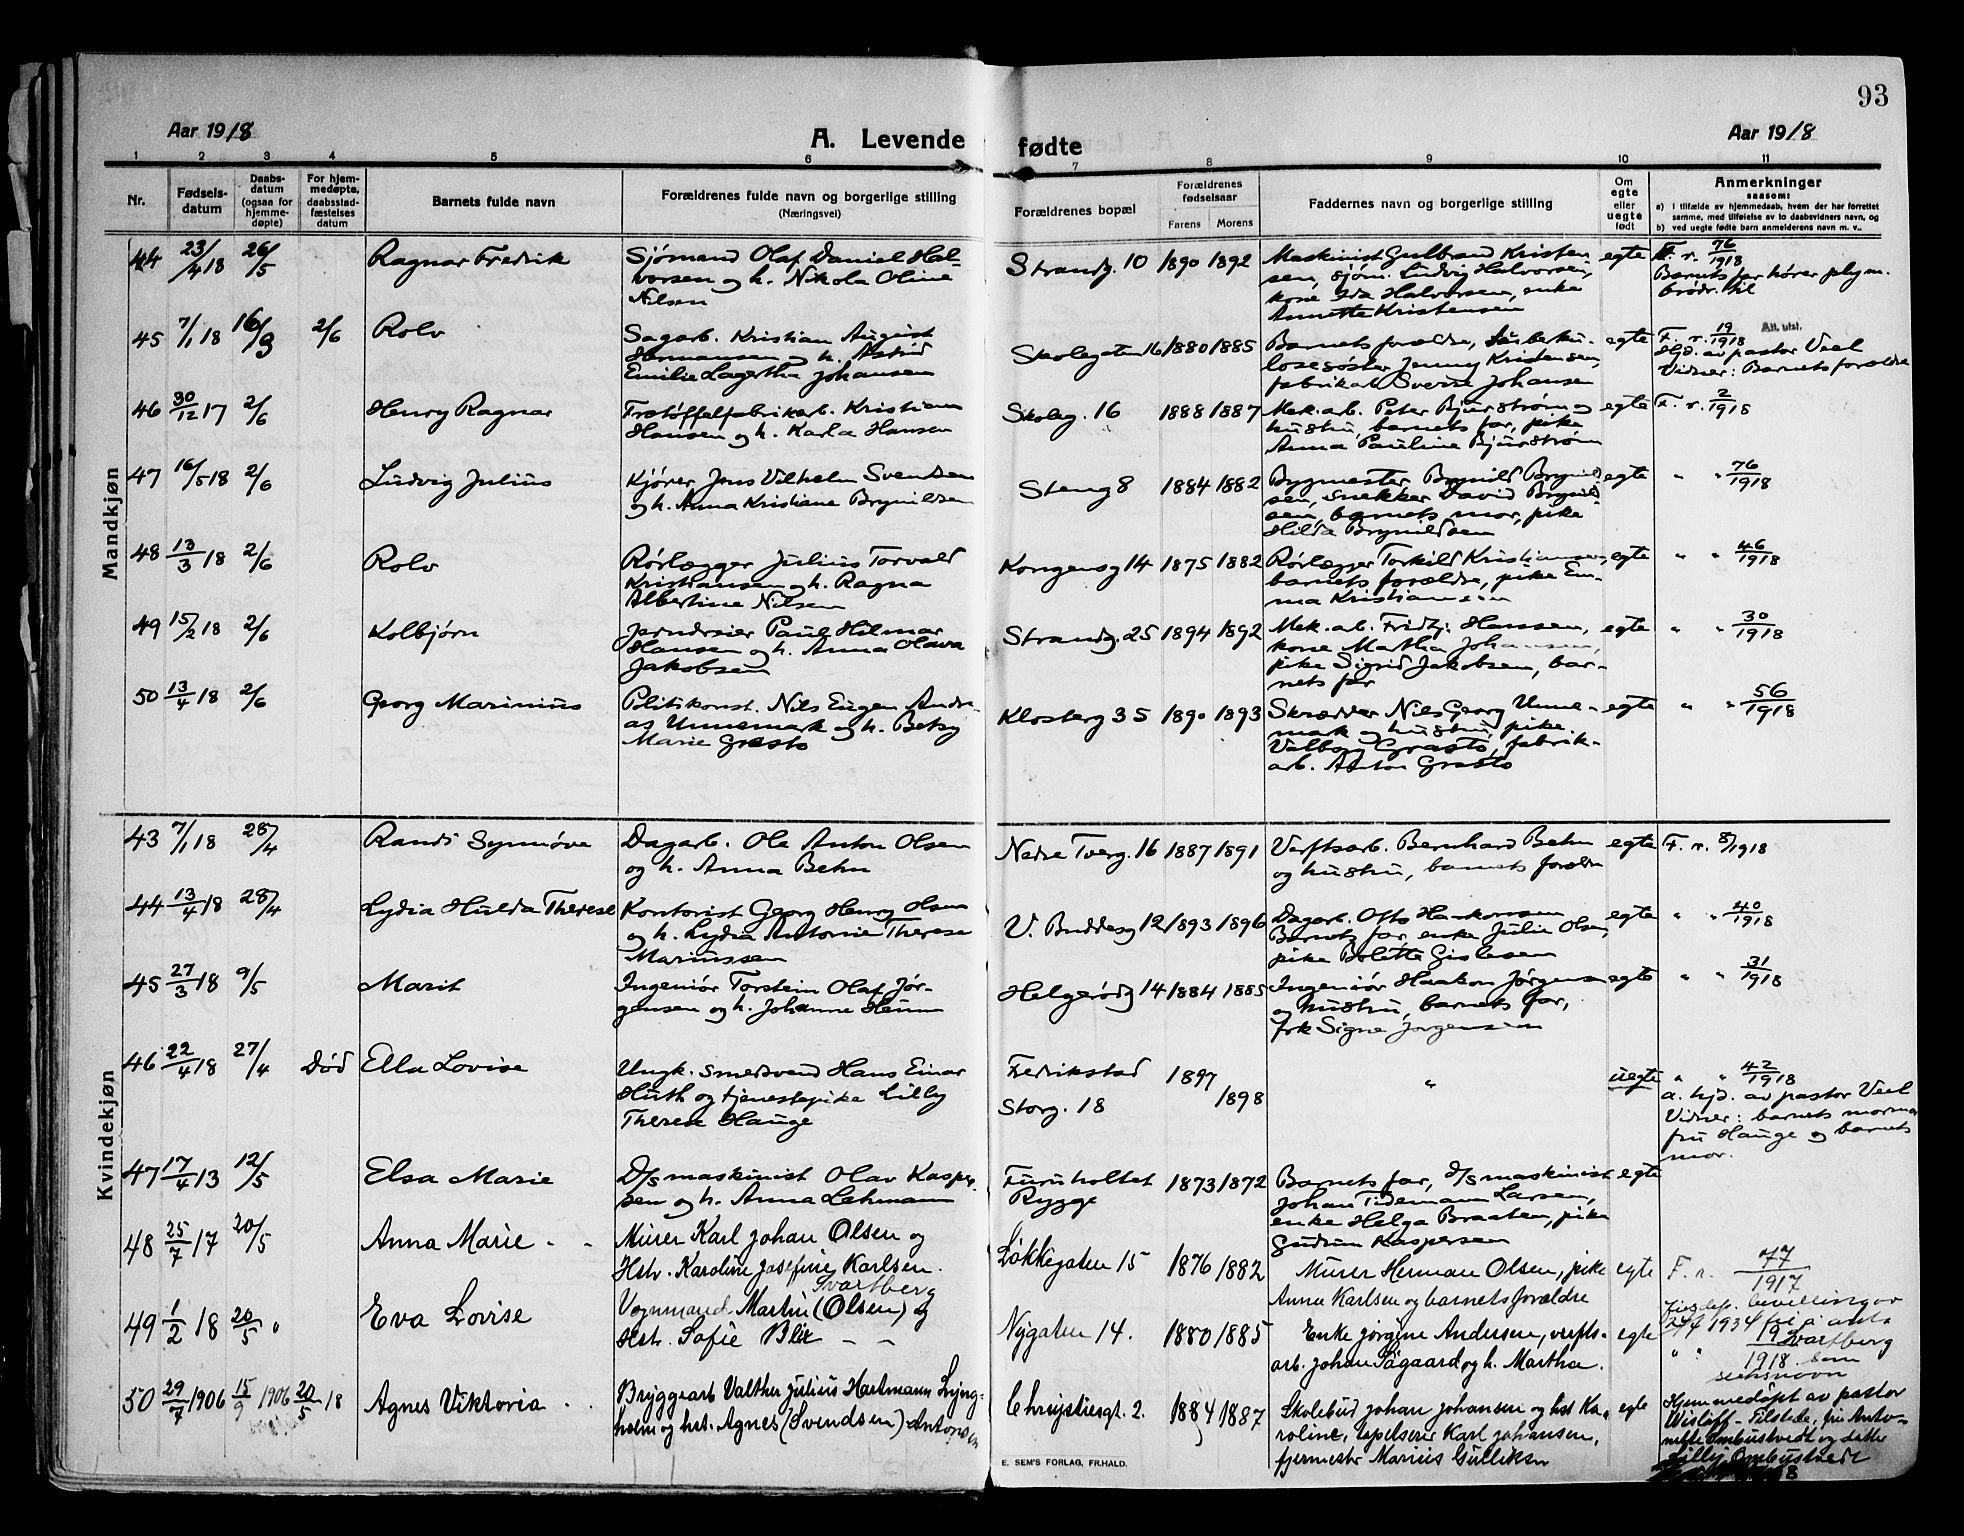 93
Aar 1918
A. Levende fødte
Aar 1918
1 2 3 4 5 6 7 8 9 10 11
Nr.
Fødsels-
datum
Daabs-
datum
(ogsaa for
hjemme-
døpte)
For hjem-
medøpte,
daabsstad-
fæstelses
datum
Barnets fulde navn
Forældrenes fulde navn og borgerlige stilling
(Næringsvei)
Forældrenes bopæl
Forældrenes
fødselsaar
Farens Morens
Faddernes navn og borgerlige stilling
Om
egte
eller
uegte
født
Anmerkninger
saasom:
a) I tilfælde av hjemmedaab, hvem der har forrettet
samme, med tilføielse av to daabsvidners navn, og
b) ved uegte fødte barn anmelderens navn m. v..
Mandkjøn
44 23/4 18 26/5 Ragnar Fredrik
Sjømand Olaf Daniel Hal-
vorsen og h. Nikola Oline
Nilsen
Strandg. 10 1890 1892
Maskinist Gulbrand Kristen-
sen, sjøm. Ludvig Halvorsen,
kone Ida Halvorsen, enke
Annette Kristensen
egte
F. r. 76/1918
Barnets far hører plym.
brødr. til
45 7/1 18 16/3 2/6 Rolv
Sagarb. Kristian August
Hermansen og h. Astrid
Emilie Lagertha Johansen
Skolegaten 16 1880 1885
Barnets forældre, tuberku-
losesøster Jenny Kristensen,
fabrikat Sverre Johansen
egte
F. r. 19/1918 Att. utst.
Hjd. av pastor Veel
Vidner: Barnets forældre
46 30/12 17 2/6 Henry Ragnar
Trøtøffelfabrikarb. Kristian
Hansen og h. Karla Hansen
Skoleg. 16 1888 1887
Mek. arb. Peter Bjurstrøm og
hustru, barnets far, pike
Anna Pauline Bjurstrøm
egte
F. r. 2/1918
47 16/5 18 2/6 Ludvig Julius
Kjører Jens Vilhelm Svendsen
og h. Anna Kristiane Brynildsen
Steng 8 1884 1882
Bygmester Brynild Brynild-
sen, snekker David Brynild-
sen, barnets mor, pike
Hilda Brynildsen
egte
" " 76/1918
48 13/3 18 2/6 Rolv
Rørlægger Julius Torvald
Kristiansen og h. Ragna
Albertine Nilsen
Kongensg 14 1875 1882
Rørlægger Torkild Kristiansen,
barnets forældre, pike Em-
ma Kristiansen
egte
" " 46/1918
49 15/2 18 2/6 Kolbjørn
Jerndreier Paul Hilmar
Hansen og h. Anna Olava
Jakobsen
Strandg. 25 1894 1892
Mek. arb. Fridtj. Hansen,
kone Martha Johansen,
pike Sigrid Jakobsen, bar-
nets far
egte
" " 30/1918
50 13/4 18 2/6 Georg Marinius
Politikonst. Nils Eugen Andre-
as Unnemark og h. Betsy
Marie Gresto
Klosterg 35 1890 1893
Skrædder Nils Georg Unne-
mark og hustru, pike
Valborg Grasto, fabrik-
arb. Anton Grasto
egte
" " 56/1918
Kvindekjøn
43 7/1 18 28/4 Randi Synnøve
Dagarb. Ole Anton Olsen
og h. Anna Behn
Nedre Tverg. 16 1887 1891
Verftsarb. Bernhard Behn
og hustru, barnets foreldre
egte
F. r. 8/1918
44 13/4 18 28/4 Lydia Hulda Therese
Kontorist Georg Henry Olsen
og h. Lydia Antonie Therese
Mariussen
V. Buddesg 12 1893 1896
Dagarb. Otto Haakonsen
Barnets far, enke Julie Olsen,
pike Bolette Gislesen
egte
" " 40/1918
45 27/3 18 9/5 Marit
Ingeniør Torstein Olaf Jør-
gensen og h. Johanne Heum
Helgerødg 14 1884 1885
Ingeniør Haakon Jørgensen
og hustru, barnets far,
frk Signe Jørgensen
egte
" " 31/1918
46 22/4 18 27/4 Død Ella Lovise
Ungk. smedsvend Hans Einar
Huth og tjenestepike Lilly
Therese Hauge
Fredrikstad 1897
Storg. 18 1898
"
uegte
" " 42/1918
a. hjd. av pastor Veel
Vidner: barnets mormor
fru Hauge og barnets
mor.
47 17/4 13 12/5 Elsa Marie
D/S maskinist Olav Kasper-
sen og h. Anna Lehmann
Furuholtet
Rygge
1873 1872
Barnets far, D/S maskinist
Johan Tidemann Larsen,
enke Helga Braaten, pike
Gudrun Kaspersen
egte
48 25/7 17 20/5 Anna Marie
Murer Karl Johan Olsen og
Hstr. Karoline Josefine Karlsen.
Løkkegaten 15 1876 1882
Murer Herman Olsen, pike
Anna Karlsen og barnets forældre
egte
F. r. 77/1917
49 1/2 18 20/5 Eva Lovise
Svartberg
Vognmand Martin (Olsen) og
Hstr. Sofie Blix
Nygaten 14. 1880 1885
Enke Jørgine Andersen, verfts-
arb. Johan Sagaard og h. Martha.
egte
Jusdep. bevillinger
24/4 1934 for å anta
" " 19/1918 Svartberg
som
slektsnavn
50 29/7 1906 15/9 1906 20/5 18 Agnes Viktoria
Bryggearb Valther Julius Hartmann Ljung-
holm og hst. Agnes (Svendsen) Antonsen
Chrystiesgt. 2. 1884 1887
Skolebud Johan Johansen og hst Ka-
roline, tapetserer Karl Johansen,
fyrmester Marius Gulliksen
egte
Hjemmedøpt av pastor
Wisløff – Tilstede, fru Anto-
nette Ombustvedt og datter
Lilly Ombustvedt
E. SEM'S FORLAG, FR.HALD.